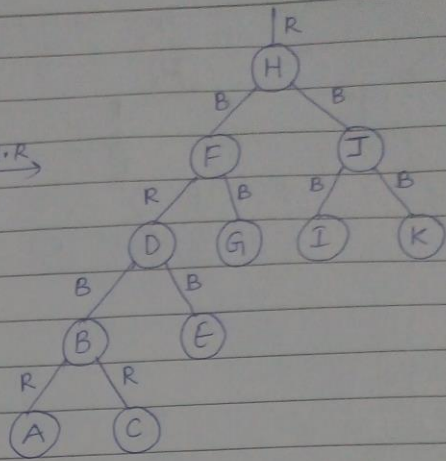 R
H
B B
.R F J
R B B B
D G I K
B B
B E
R R
A C